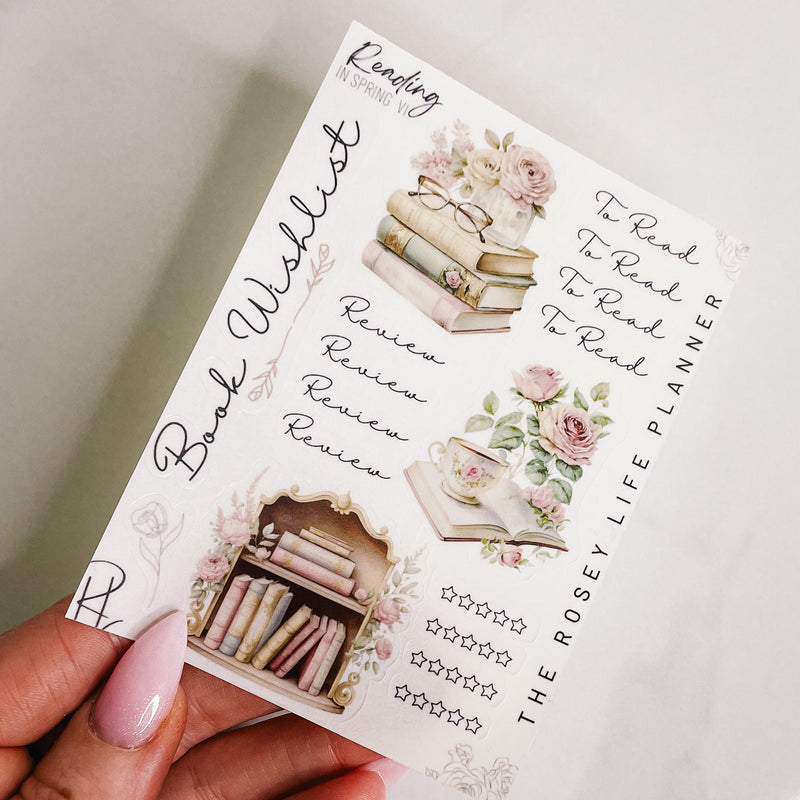 Reading
IN SPRING VI
Book Wishlist
To Read
To Read
To Read
To Read
Review
Review
Review
Review
THE ROSEY LIFE PLANNER